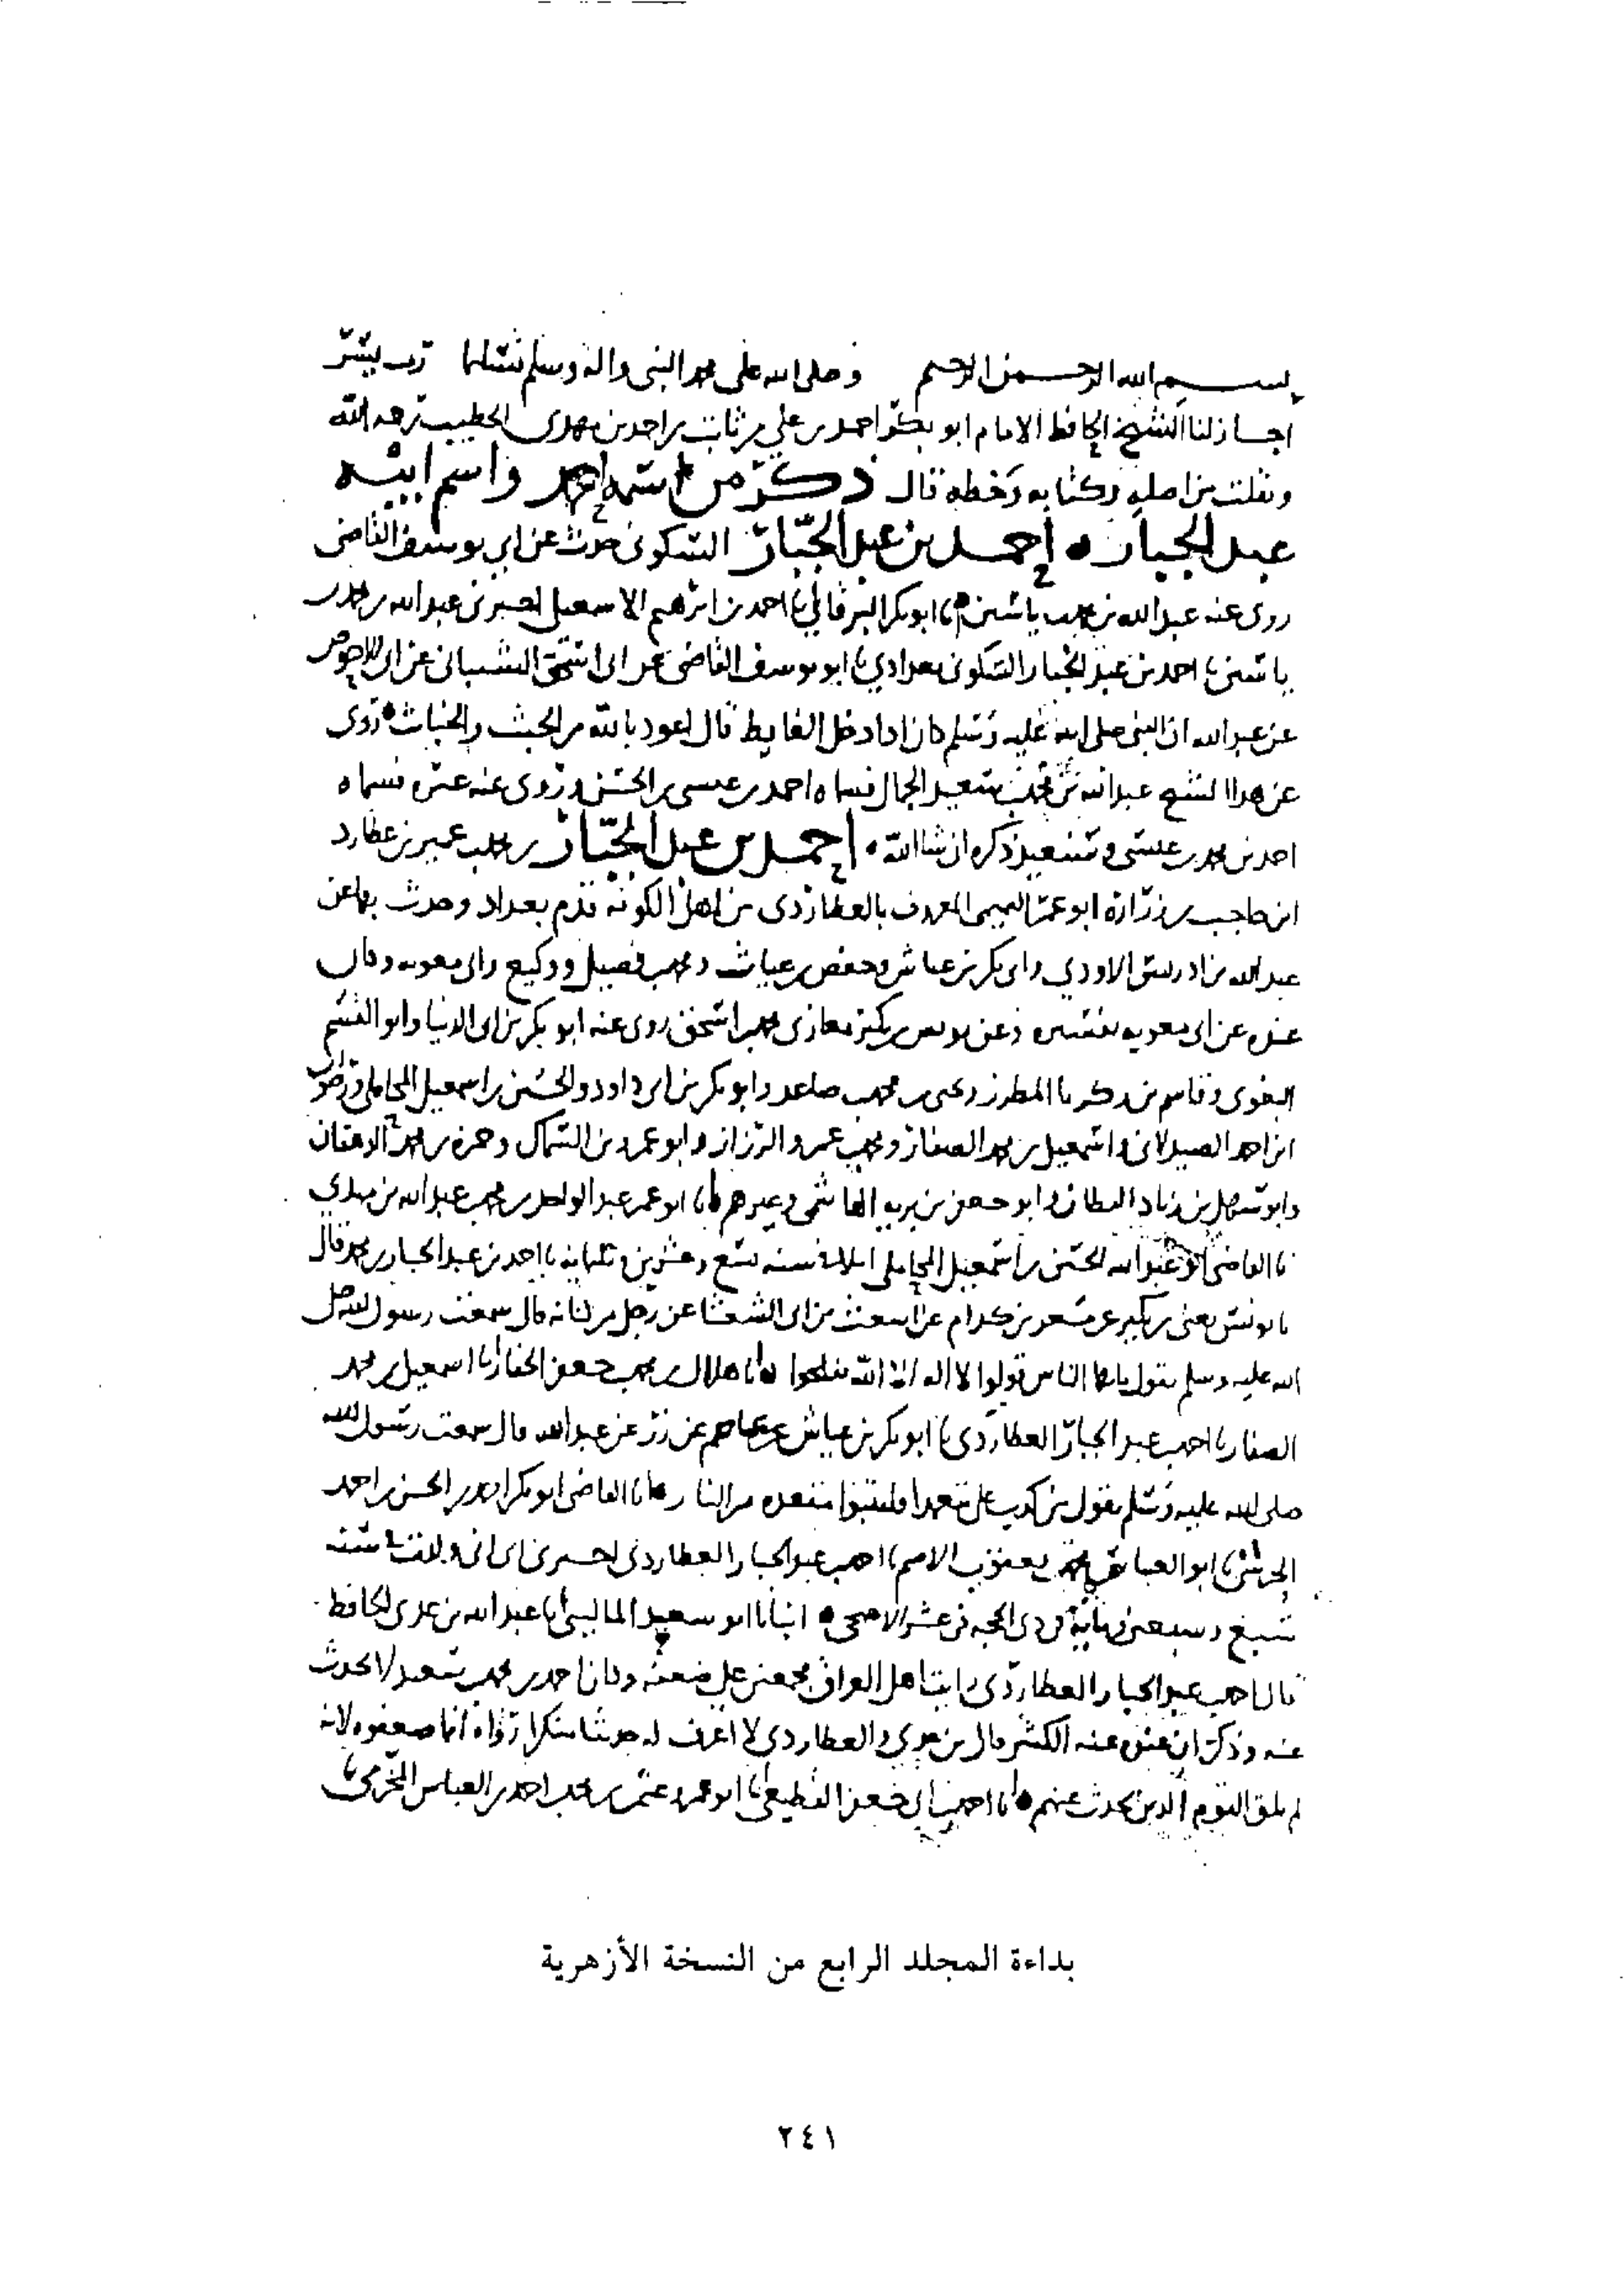 بسم الله الرحمن الرحيم وصلى الله على محمد النبي واله وسلم تسليما رب يسر
اجاز لنا الشيخ الحافظ الامام ابو بكر احمد بن علي بن ثابت بن احمد بن مهدي الخطيب رحمه الله
ونقلت من اصله وكتابه وخطه قال ذكر من اسمه احمد واسم ابيه
عبد الجبار ه احمد بن عبد الجبار السكوني حدث عن ابي يوسف القاضي
روى عنه عبد الله بن محمد ياسين ه انا ابو بكر البرقاني انا احمد بن ابرهيم الاسمعيلي اخبرني عبد الله بن محمد بن
ياسين نا احمد بن عبد الجبار السكوني بغدادي نا ابو يوسف القاضي عن ابي اسحق الشيباني عن ابي الاحوص
عن عبد الله ان النبي صلى الله عليه وسلم كان اذا دخل الغايط قال اعوذ بالله من الخبث والخباث روى
عن هذا الشيخ عبد الله بن محمد بن سعيد الجمال فسماه احمد بن عيسى بن الحسن وروى عنه غيره فسماه
احمد بن محمد بن عيسى وسنعيد ذكره ان شا الله ه احمد بن عبد الجبار بن محمد بن عمير بن عطارد
ابن حاجب بن زرارة ابو عمر التميمي المعروف بالعطاردي من اهل الكوفة قدم بغداد وحدث بها عن
عبد الله بن ادريس الاودي وابي بكر بن عياش وحفص بن غياث ومحمد بن فضيل ووكيع وابي معوية
عن ابي معوية نفسه وعن يونس بن بكير مغازي محمد بن اسحق روى عنه ابو بكر بن ابي الدنيا وابو القسم
البغوي وقاسم بن زكريا المطرز ويحيى بن محمد بن صاعد وابو بكر بن ابي داود والحسين بن اسمعيل المحاملي ورضوان
ابن احمد الصيدلاني واسمعيل بن محمد الصفار ومحمد بن عمرو الرزاز وابو عمرو بن السماك وحمزة بن محمد الدهقان
وابو سهل بن زياد القطان وابو جعفر بن بريه الهاشمي وغيرهم ه انا ابو عمر عبد الواحد بن محمد بن عبد الله بن مهدي
نا القاضي ابو عبد الله الحسين بن اسمعيل المحاملي املا في سنه تسع وعشرين وثلثمايه نا احمد بن عبد الجبار بن محمد قال
نا يونس يعني بن بكير عن مسعر بن كدام عن اشعث بن ابي الشعثا عن رجل من كنانه قال سمعت رسول الله صلى
الله عليه وسلم يقول يا ايها الناس قولوا لا اله الا الله تفلحوا ه انا هلال بن محمد بن جعفر الحفار نا اسمعيل بن محمد
الصفار نا احمد بن عبد الجبار العطاردي نا ابو بكر بن عياش عن عاصم عن زر عن عبد الله قال سمعت رسول الله
صلى الله عليه وسلم يقول من كذب علي متعمدا فليتبوا مقعده من النار ه انا القاضي ابو بكر احمد بن الحسن بن احمد
الحرشي نا ابو العباس محمد بن يعقوب الاصم نا احمد بن عبد الجبار العطاردي اخبرني ابي اني ولدت سنه
سبع وسبعين ومائة في ذي الحجه في عشر الاضحى ه انبانا ابو سعيد الماليني انا عبد الله بن عدي الحافظ
قال احمد بن عبد الجبار العطاردي رايت اهل العراق مجمعين على ضعفه وكان احمد بن محمد بن سعيد لا يحدث
عنه وذكر ان عنده عنه الكثير قال بن عدي والعطاردي لا اعرف له حديثا منكرا رواه انما ضعفوه لانه
لم يلق القوم الذين يحدث عنهم ه انا احمد بن ابي جعفر القطيعي انا ابو عمرو عثمن بن محمد بن احمد بن العباس المخرمي نا
بداءة المجلد الرابع من النسخة الأزهرية
٢٤١